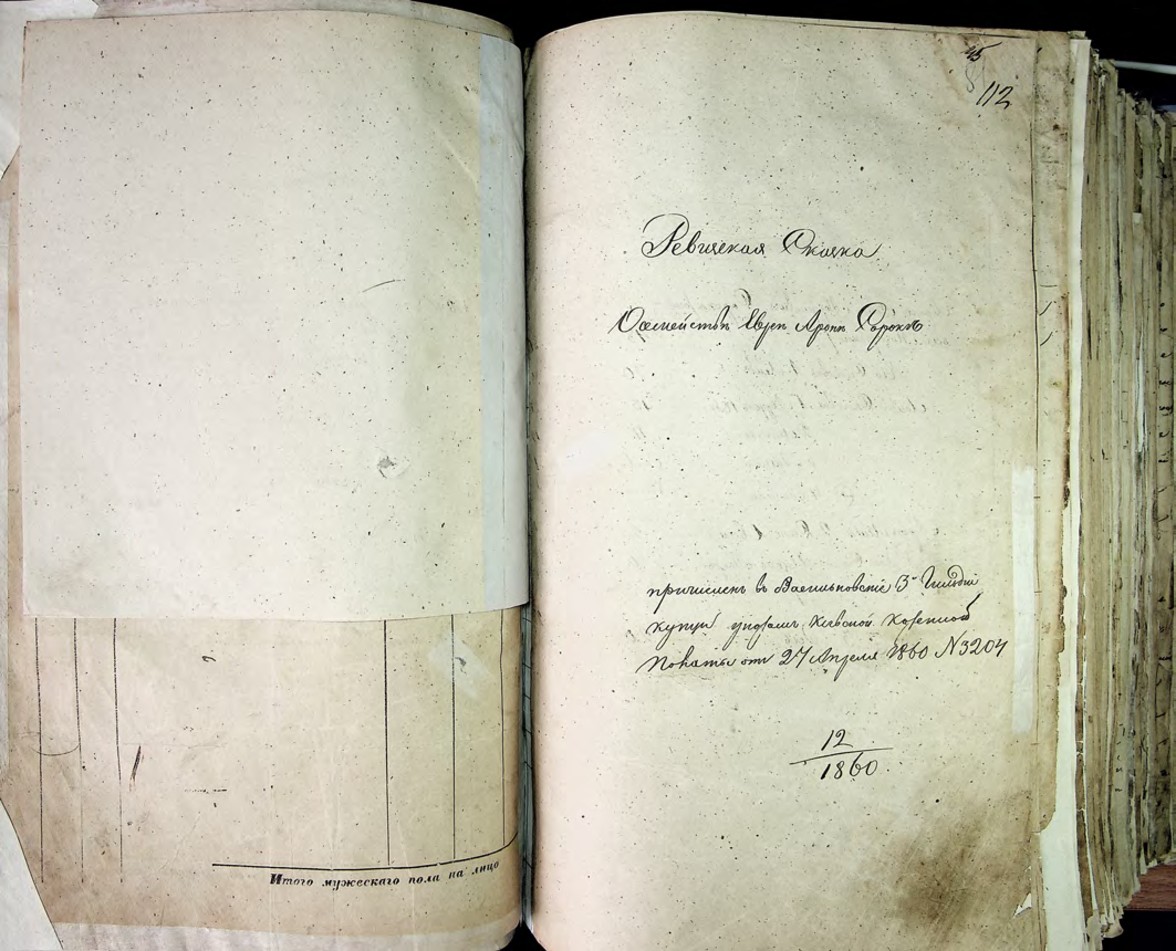 Итого мужескаго пола на лицо
45
112
Ревизская Сказка
О семействѣ Евреѧ Арона Сорока
причисленъ въ Васильковскіе 3й Гильдіи
купцы указомъ Кіевской Казенной
Палаты отъ 27 Апреля 1860 №3204
12
1860